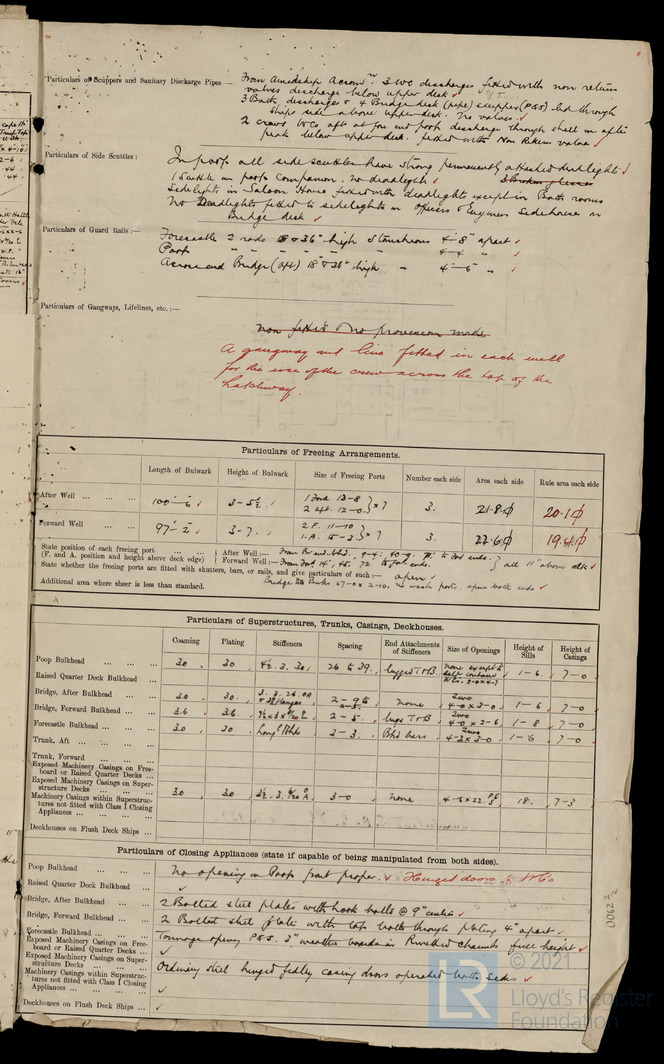 Particulars of Scuppers and Sanitary Discharge Pipes — From Amidship Accomn. 3 WC discharges fitted with non return
valves discharge below upper deck
3 Bath discharges & 4 Bridge deck (pipe) scuppers (P&S) led through
ships side above upper deck. No valves.
2 crews WCs aft and fore end poop discharge through shell in after
peak below upper deck. fitted with Non Return valves
Particulars of Side Scuttles :
In poop all side scuttles have strong permanently attached deadlights
1 Scuttle in poop Companion. no deadlight
Sidelights in Saloon House fitted with deadlights except in Bath rooms
No Deadlights fitted to sidelights in officers & Engineers Sidehouses on
Bridge deck
Particulars of Guard Rails :—
Forecastle 2 rods 18 & 36" high Stanchions 4-8" apart
Poop " " " " 4-4 "
Around Bridge (aft) 18" & 36" high " 4-6 "
Particulars of Gangways, Lifelines, etc. :—
non fitted & no provision made
A gangway and line fitted in each well
for the use of the crew across the top of the
hatchway.
Particulars of Freeing Arrangements.
Length of Bulwark Height of Bulwark Size of Freeing Ports Number each side Area each side Rule area each side
After Well 100'-6 3-5½ 1 Ford 13-8 2 aft. 12-0 } x 7 3. 21.8 20.1
Forward Well 97'-2 3-7. 2 F. 11-10 1.A. 15-3 } x 7 3. 22.6 19.4
State position of each freeing port
(F. and A. position and height above deck edge)
After Well :—
Forward Well :—
all 11" above dk
State whether the freeing ports are fitted with shutters, bars, or rails, and give particulars of such :— open
Additional area where sheer is less than standard.
open both ends
Particulars of Superstructures, Trunks, Casings, Deckhouses.
Coaming Plating Stiffeners Spacing End Attachments of Stiffeners Size of Openings Height of Sills Height of Casings
Poop Bulkhead 30 30 4½. 3. 30 26 to 39 lugged T&B 1-6 7-0
Raised Quarter Deck Bulkhead
Bridge, After Bulkhead 30 30. none Two 4-0 x 3-0 1-6 7-0
Bridge, Forward Bulkhead 36 36. 2-5 lugs T&B Two 4-0 x 2-6 1-8 7-0
Forecastle Bulkhead 30 30 3-3. Bhd bars Two 4-3 x 3-0 1-6 7-0
Trunk, Aft
Trunk, Forward
Exposed Machinery Casings on Free-
board or Raised Quarter Decks
Exposed Machinery Casings on Super-
structure Decks 30 30 3-0 none 18. 7-3
Machinery Casings within Superstruc-
tures not fitted with Class I Closing
Appliances
Deckhouses on Flush Deck Ships
Particulars of Closing Appliances (state if capable of being manipulated from both sides).
Poop Bulkhead No opening in Poop front proper. Hinged doors to WCs
Raised Quarter Deck Bulkhead
Bridge, After Bulkhead 2 Bolted steel plates with hook bolts @ 9" centres
Bridge, Forward Bulkhead 2 Bolted steel plate with tap bolts through plating 4" apart
Forecastle Bulkhead Tonnage opening P&S. 3" weather boards in Rivetted channels full height
Exposed Machinery Casings on Free-
board or Raised Quarter Decks
Exposed Machinery Casings on Super-
structure Decks Ordinary steel hinged fidley casing doors operated both sides
Machinery Casings within Superstruc-
tures not fitted with Class I Closing
Appliances
Deckhouses on Flush Deck Ships
© 2021
LR
Lloyd's Register
Foundation